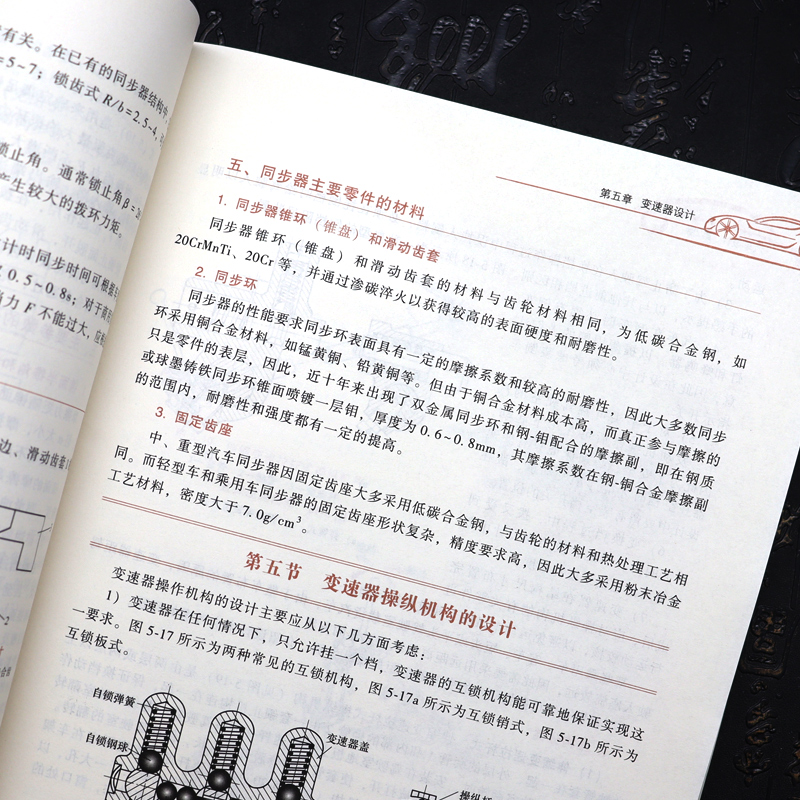 有关。在已有的同步器结构中
=5~7；锁齿式 R/b=2.5~4，
锁止角。通常锁止角β=
产生较大的拨环力矩。
计时同步时间可根据
0.5~0.8s；对于商
力 F 不能过大，应
边、滑动齿套
第五章 变速器设计
五、同步器主要零件的材料
1. 同步器锥环（锥盘）和滑动齿套
同步器锥环（锥盘）和滑动齿套的材料与齿轮材料相同，为低碳合金钢，如
20CrMnTi、20Cr 等，并通过渗碳淬火以获得较高的表面硬度和耐磨性。
2. 同步环
同步器的性能要求同步环表面具有一定的摩擦系数和较高的耐磨性，因此大多数同步
环采用铜合金材料，如锰黄铜、铅黄铜等。但由于铜合金材料成本高，而真正参与摩擦的
只是零件的表层，因此，近十年来出现了双金属同步环和钢-钼配合的摩擦副，即在钢质
或球墨铸铁同步环锥面喷镀一层钼，厚度为 0.6~0.8mm，其摩擦系数在钢-铜合金摩擦副
的范围内，耐磨性和强度都有一定的提高。
3. 固定齿座
中、重型汽车同步器因固定齿座大多采用低碳合金钢，与齿轮的材料和热处理工艺相
同。而轻型车和乘用车同步器的固定齿座形状复杂，精度要求高，因此大多采用粉末冶金
工艺材料，密度大于 7.0g/cm³。
第五节 变速器操纵机构的设计
变速器操作机构的设计主要应从以下几方面考虑：
1）变速器在任何情况下，只允许挂一个档，变速器的互锁机构能可靠地保证实现这
一要求。图 5-17 所示为两种常见的互锁机构，图 5-17a 所示为互锁销式，图 5-17b 所示为
互锁板式。
自锁弹簧
自锁钢球
变速器盖
操纵杆